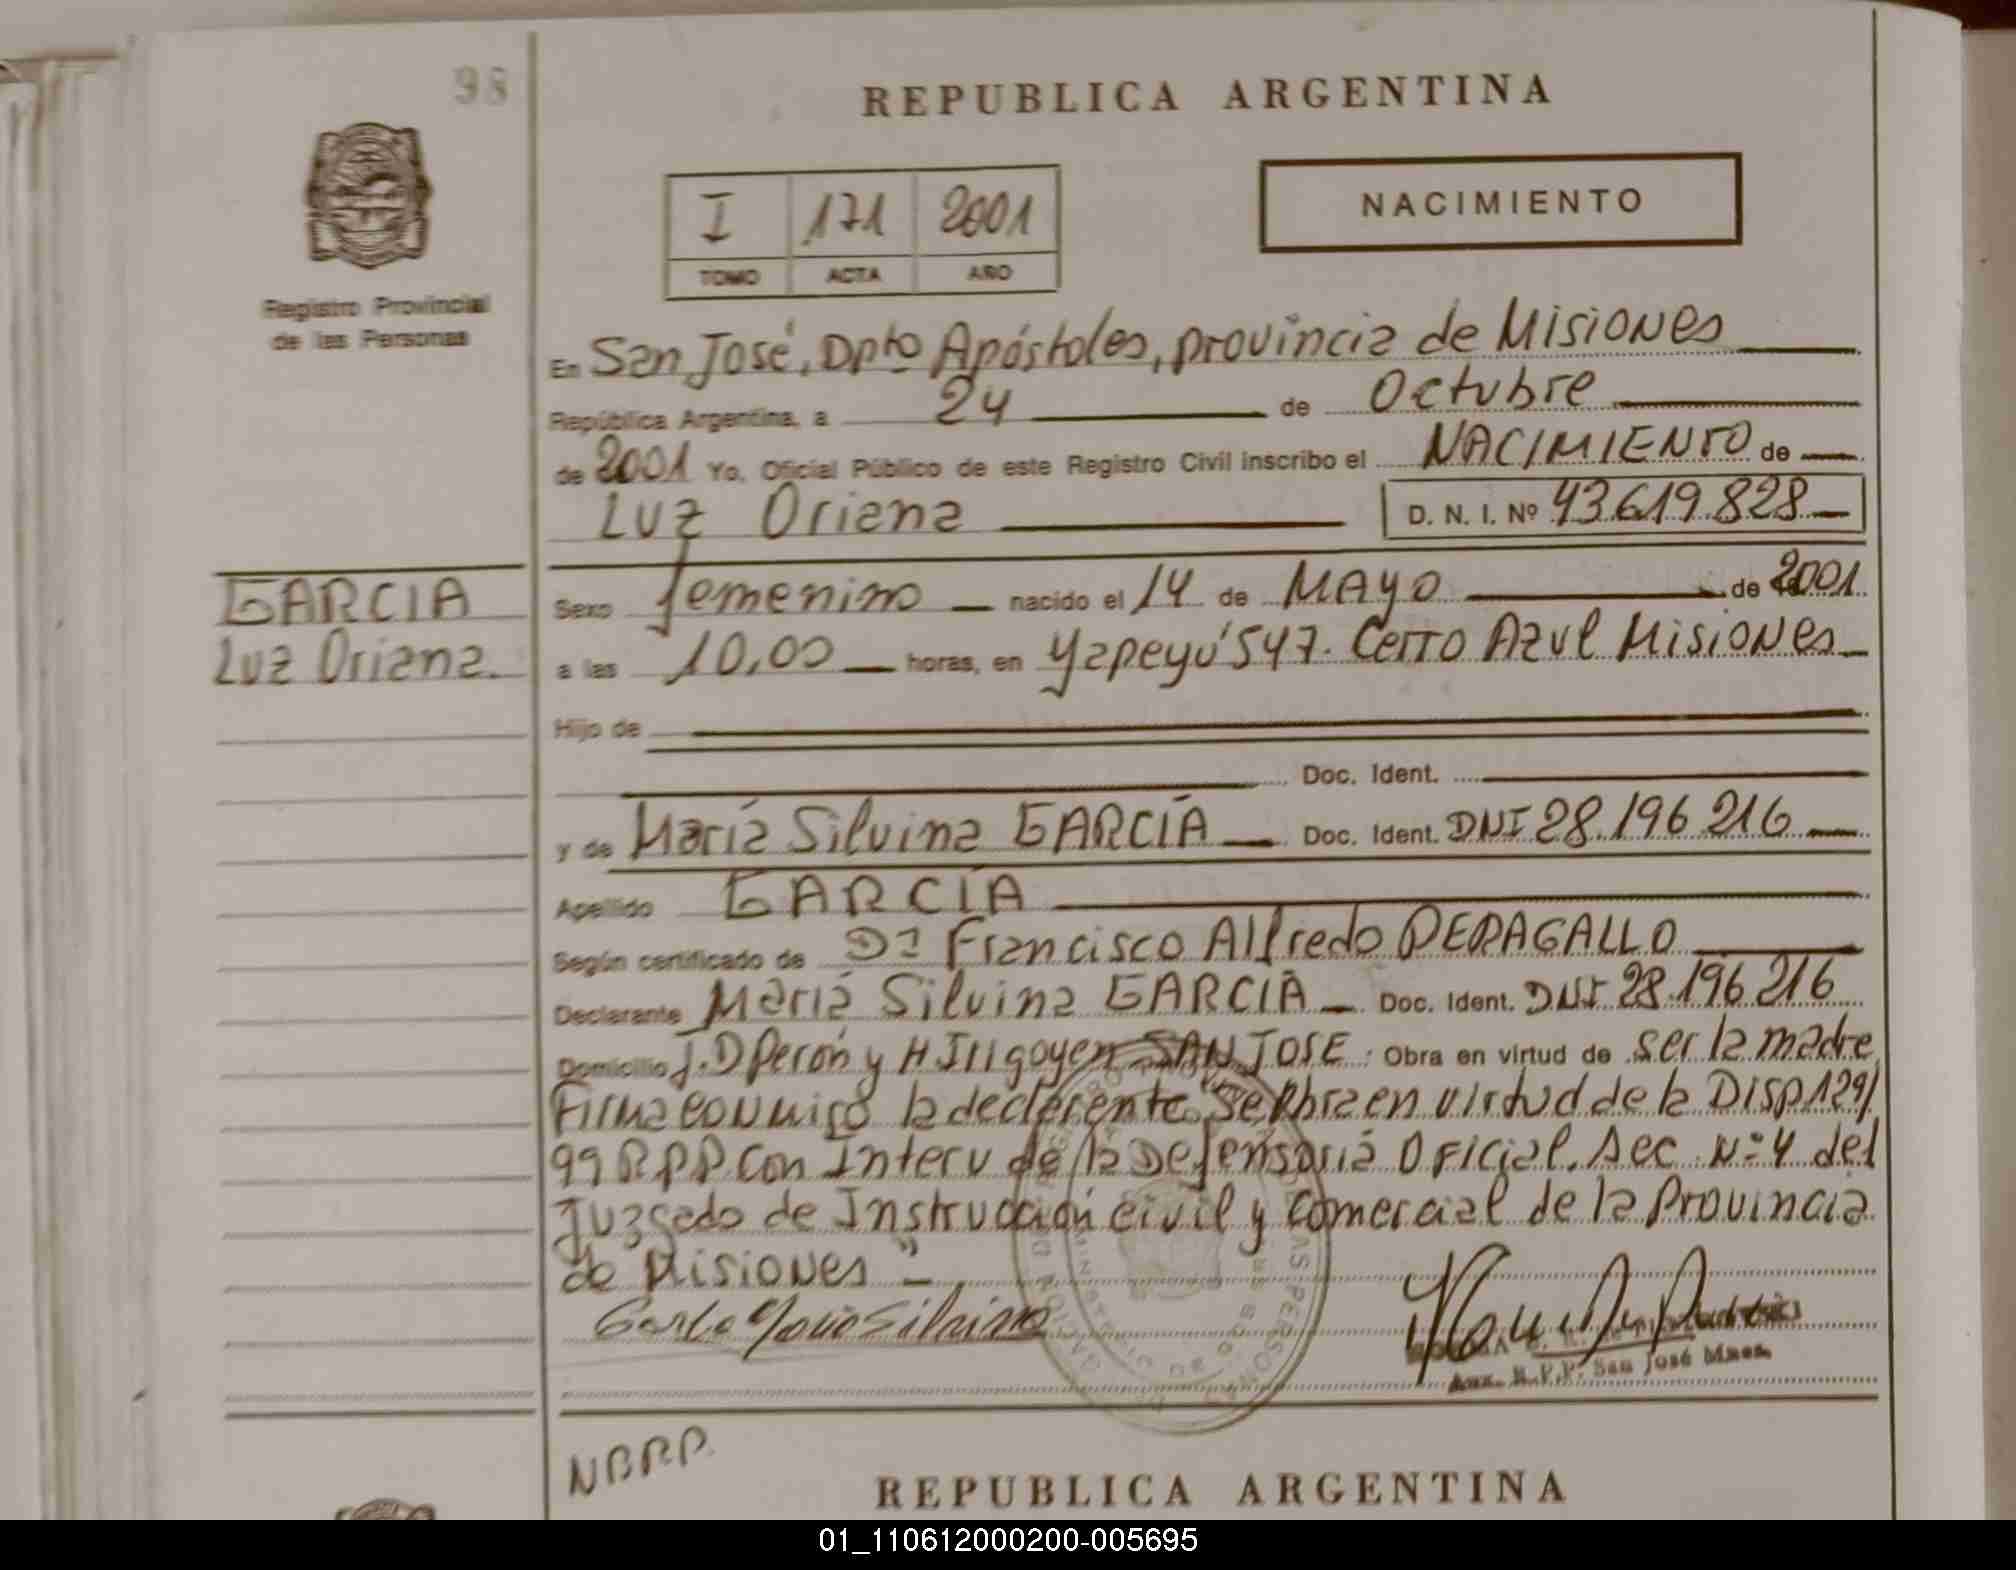 98
REPUBLICA ARGENTINA
NACIMIENTO
I 171 2001
TOMO ACTA AÑO
Registro Provincial
de las Personas
En San José, Dpto Apóstoles, provincia de Misiones
República Argentina, a 24 de Octubre
de 2001 Yo, Oficial Público de este Registro Civil inscribo el NACIMIENTO de
Luz Oriana D. N. I. Nº 43.619.828
GARCIA
Luz Oriana.
Sexo femenino nacido el 14 de MAYO de 2001.
a las 10,00 horas, en Yapeyú 547. Cerro Azul Misiones
Hijo de
Doc. Ident.
y de María Silvina GARCÍA Doc. Ident. DNI 28.196 216
Apellido GARCÍA
Según certificado de Francisco Alfredo PERAGALLO
Declarante María Silvina GARCIA Doc. Ident. DNI 28.196 216
Domicilio J.D Perón y H Irigoyen SAN JOSE. Obra en virtud de ser la madre
Firma conmigo la declarante. Se obra en virtud de la DISP 129/
99 R.P.P. Con Interv de la Defensoría Oficial. Sec Nº 4 del
Juzgado de Instrucción Civil y Comercial de la Provincia
de Misiones
R.P.P. San José Mnes.
REPUBLICA ARGENTINA
01_110612000200-005695